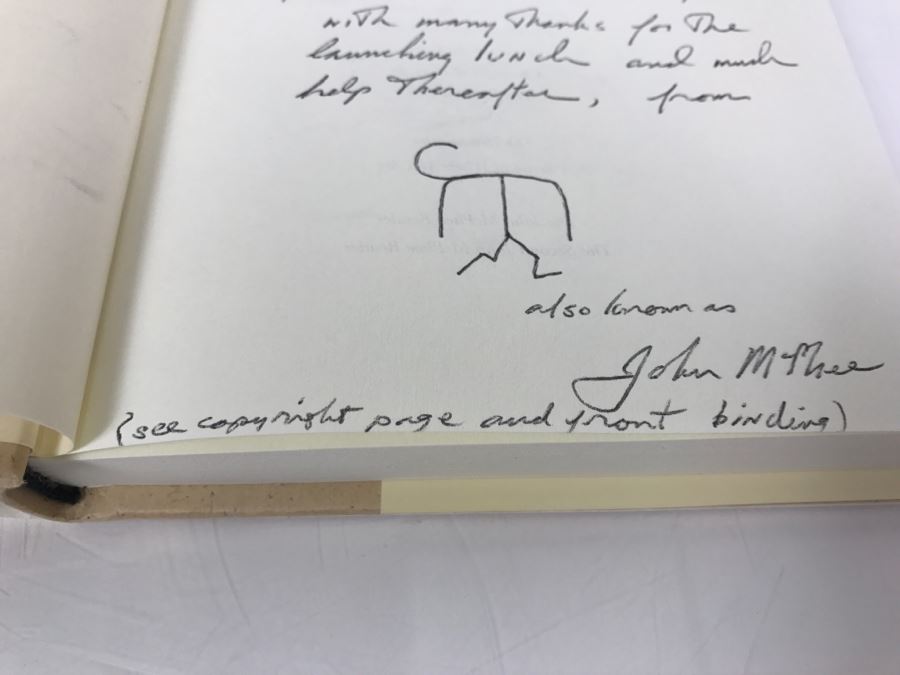 with many thanks for the
launching lunch and much
help thereafter, from
also known as
John McPhee
(see copyright page and front binding)